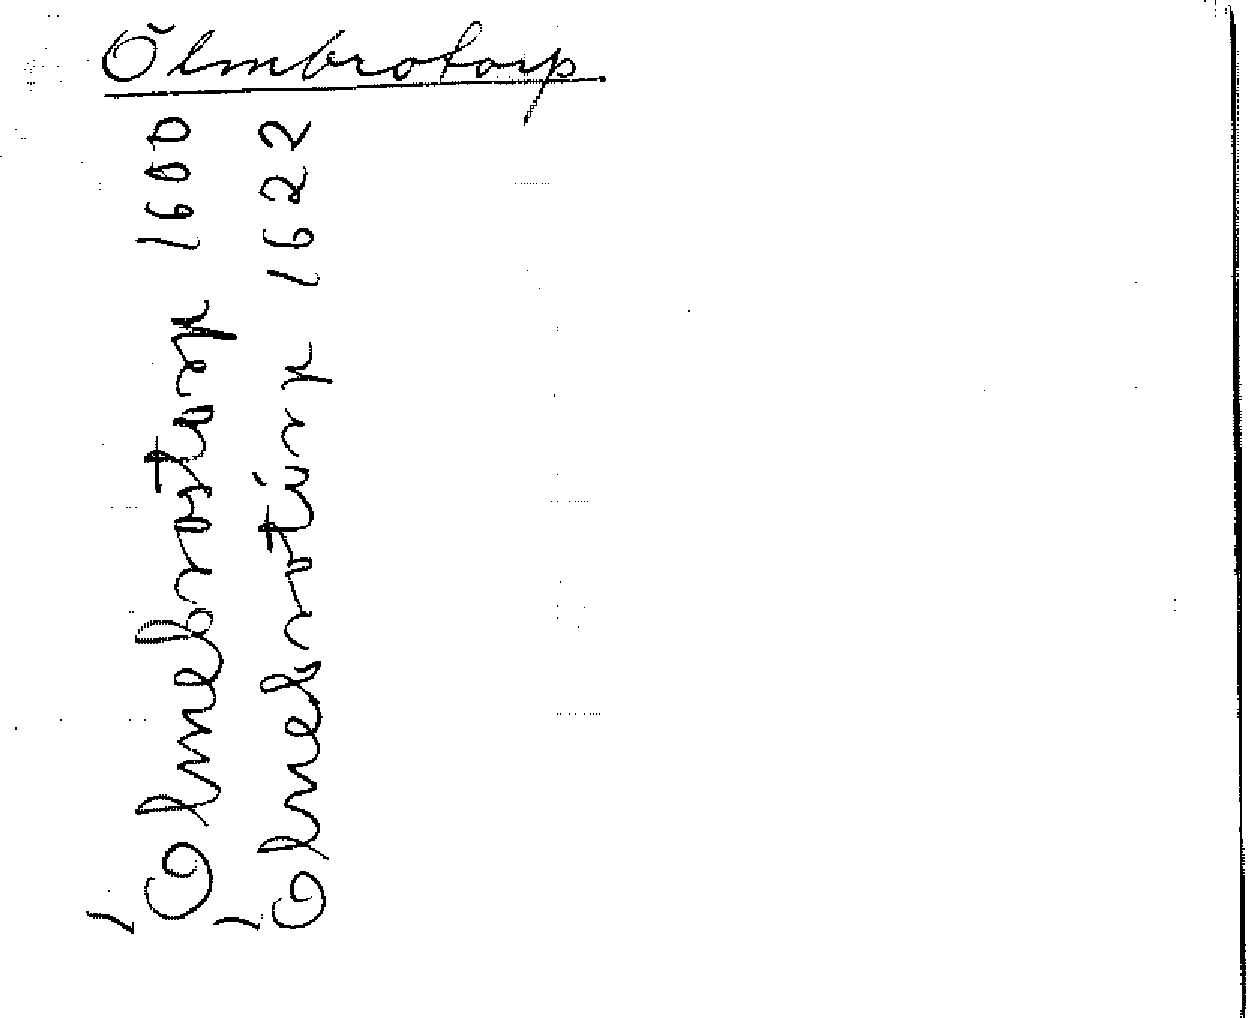 Ölmbrotorp.
Ólmebrostorp 1600
Ólmebrotúrp 1622